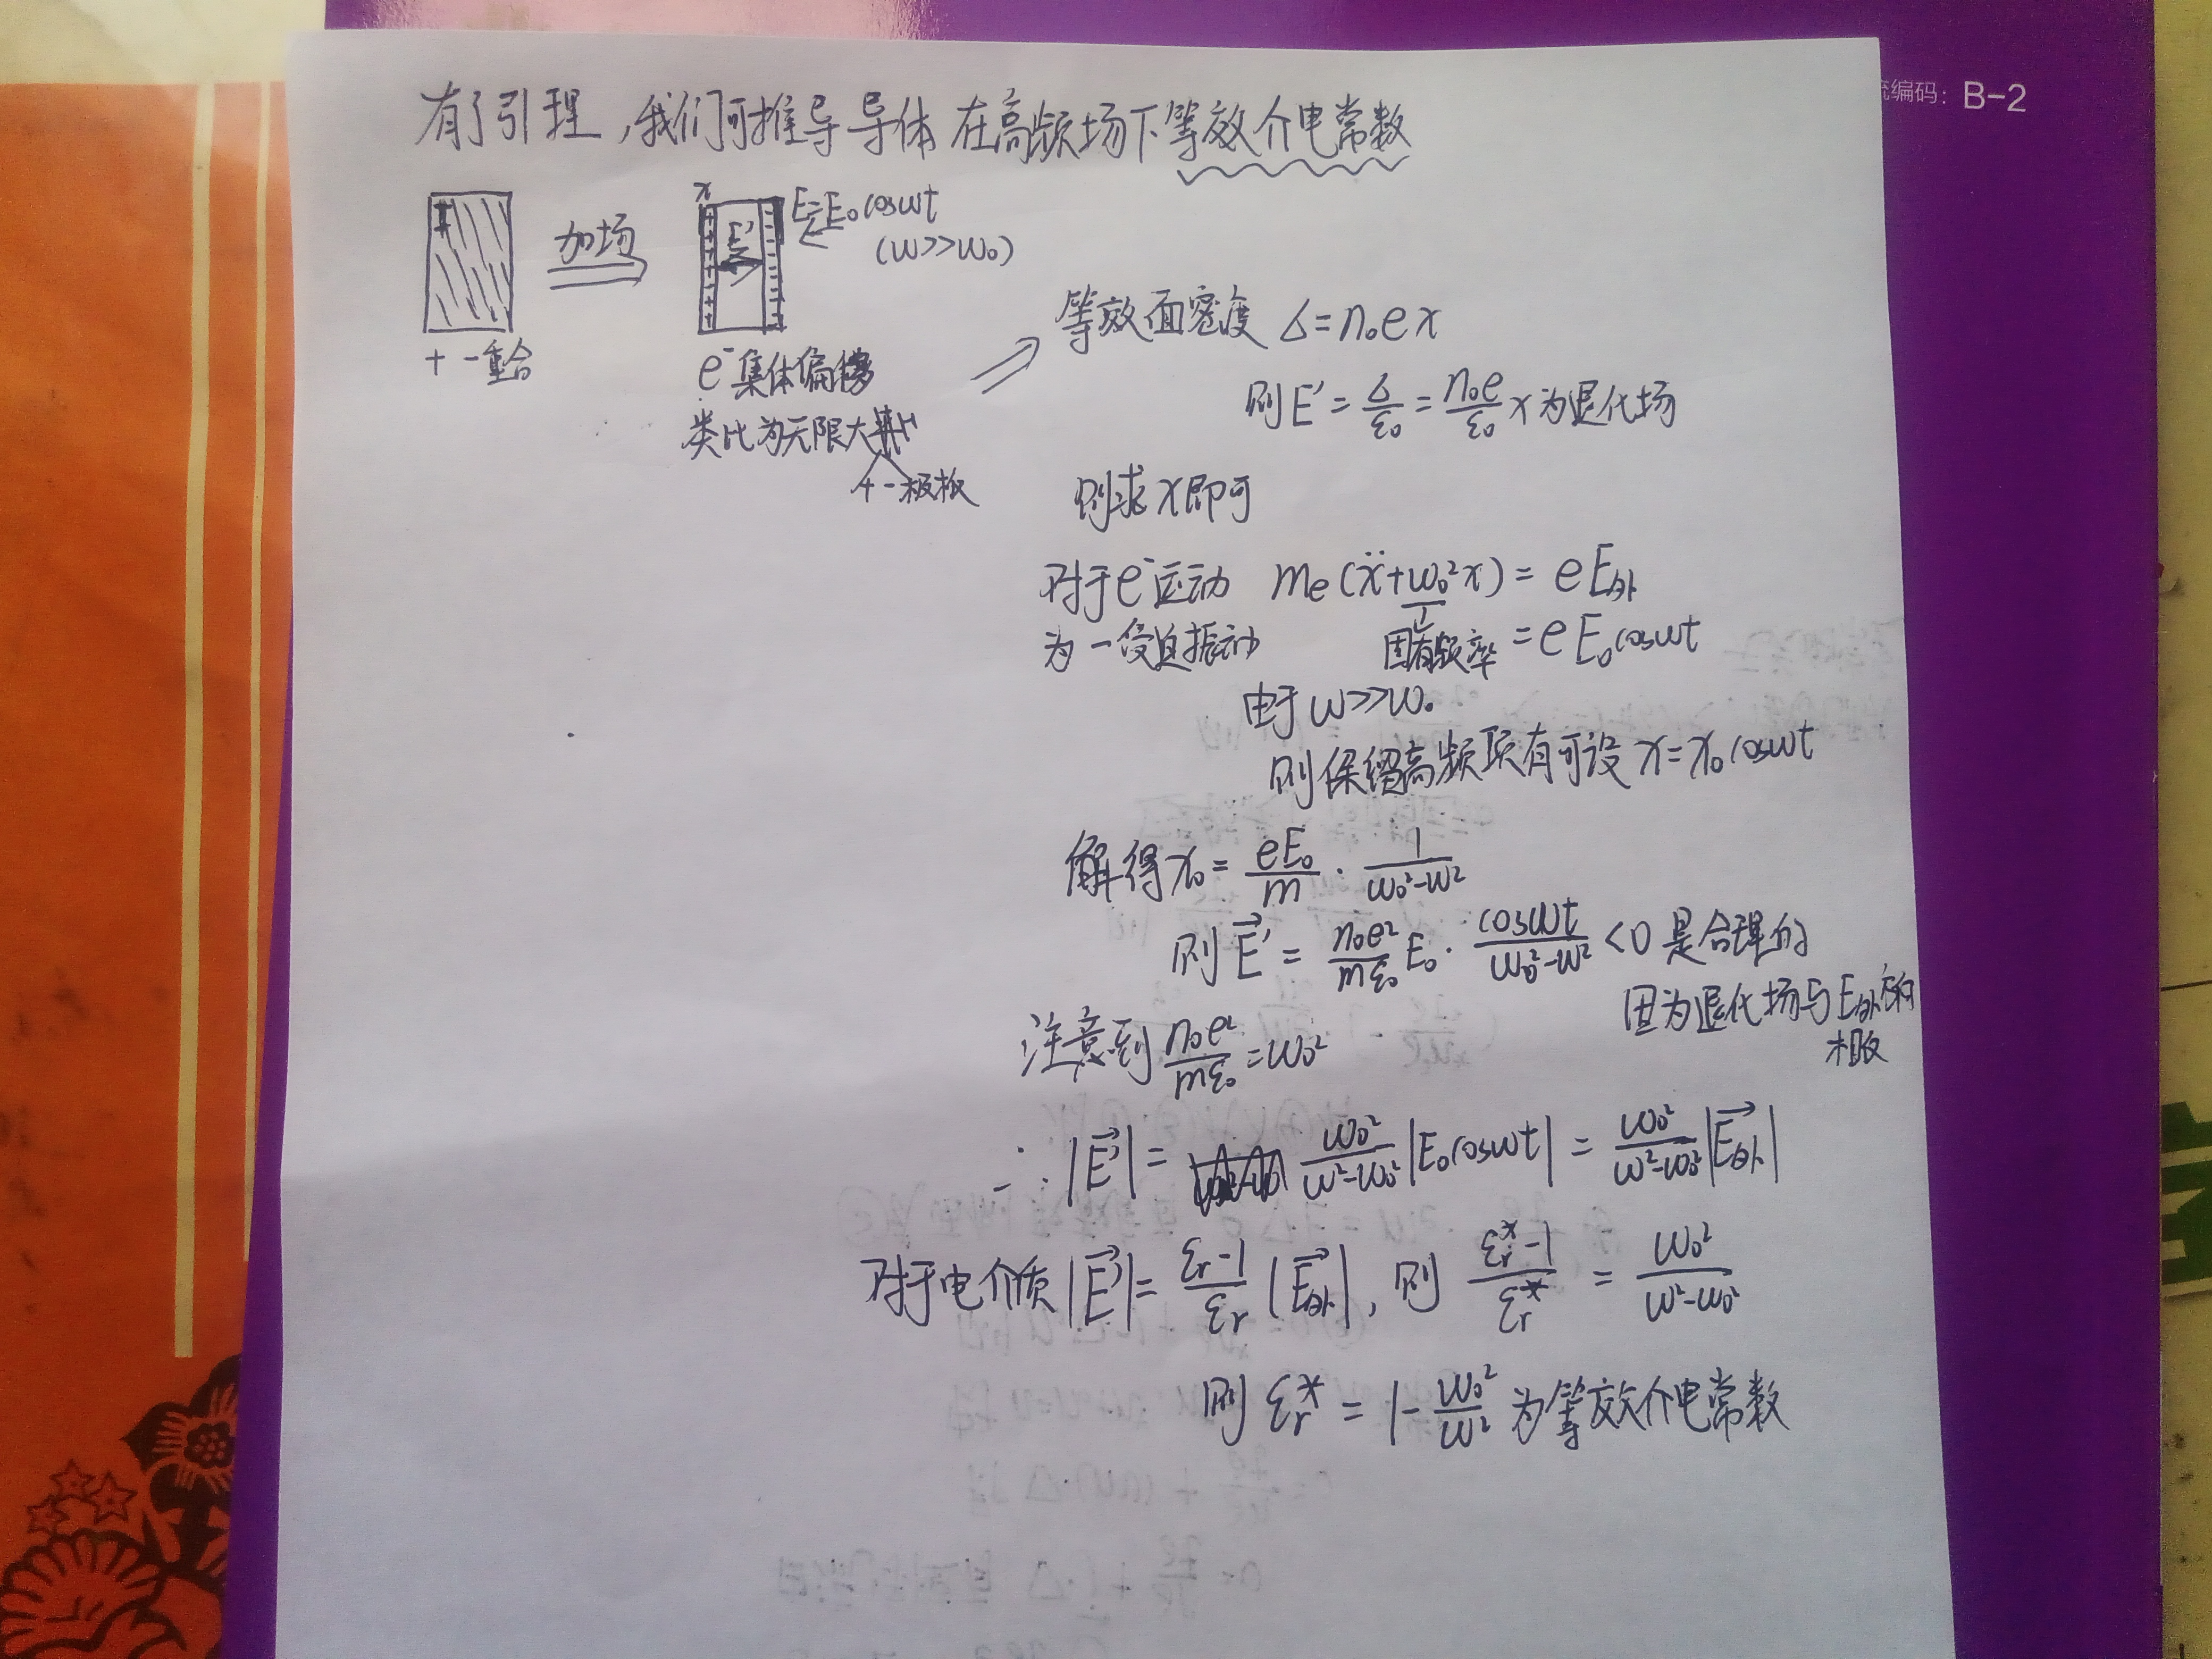 统编码: B-2
有了引理,我们可推导导体在高频场下等效介电常数
加场
x
E'
E=E₀cosωt
(ω>>ω₀)
+ -重合
e⁻集体偏移
类比为无限大
+ -极板
等效面密度 σ=n₀ex
则E'=σ/ε₀=n₀e/ε₀ x 为退化场
则求x即可
对于e⁻运动 mₑ(ẍ+ω₀²x)=eE外
为一受迫振动 固有频率 =eE₀cosωt
由于ω>>ω₀
则保留高频项有可设x=x₀cosωt
解得x₀=eE₀/m·1/(ω₀²-ω²)
则E⃗'=n₀e²/mε₀ E₀·cosωt/(ω₀²-ω²)<0是合理的
因为退化场与E外方向
相反
注意到n₀e²/mε₀=ω₀²
∴|E⃗'|=ω₀²/(ω²-ω₀²)|E₀cosωt|=ω₀²/(ω²-ω₀²)|E⃗外|
对于电介质|E⃗'|=(εr-1)/εr|E⃗外|,则(εr*-1)/εr*=ω₀²/(ω²-ω₀²)
则εr*=1-ω₀²/ω²为等效介电常数